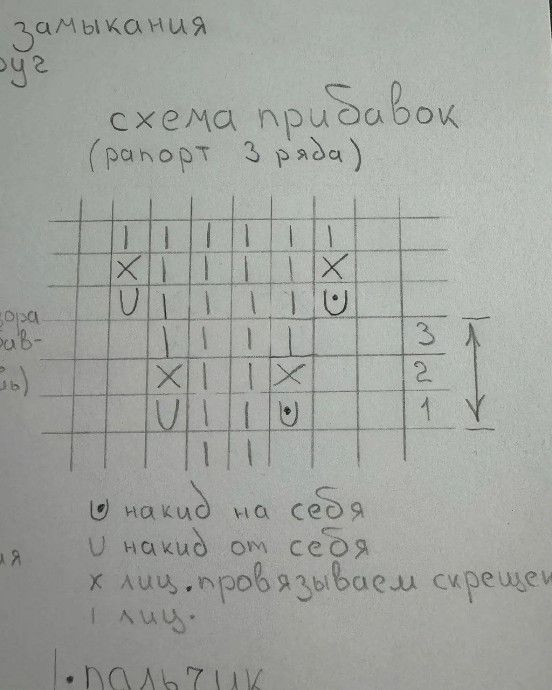 замыкания
схема прибавок
(рапорт 3 ряда)
| | | | | |
X | | | | X
U | | | | U
| | | | 3
X | | X 2
U | | U 1
| |
U накид на себя
U накид от себя
x лиц. провязываем скрещен
| лиц.
пальчик